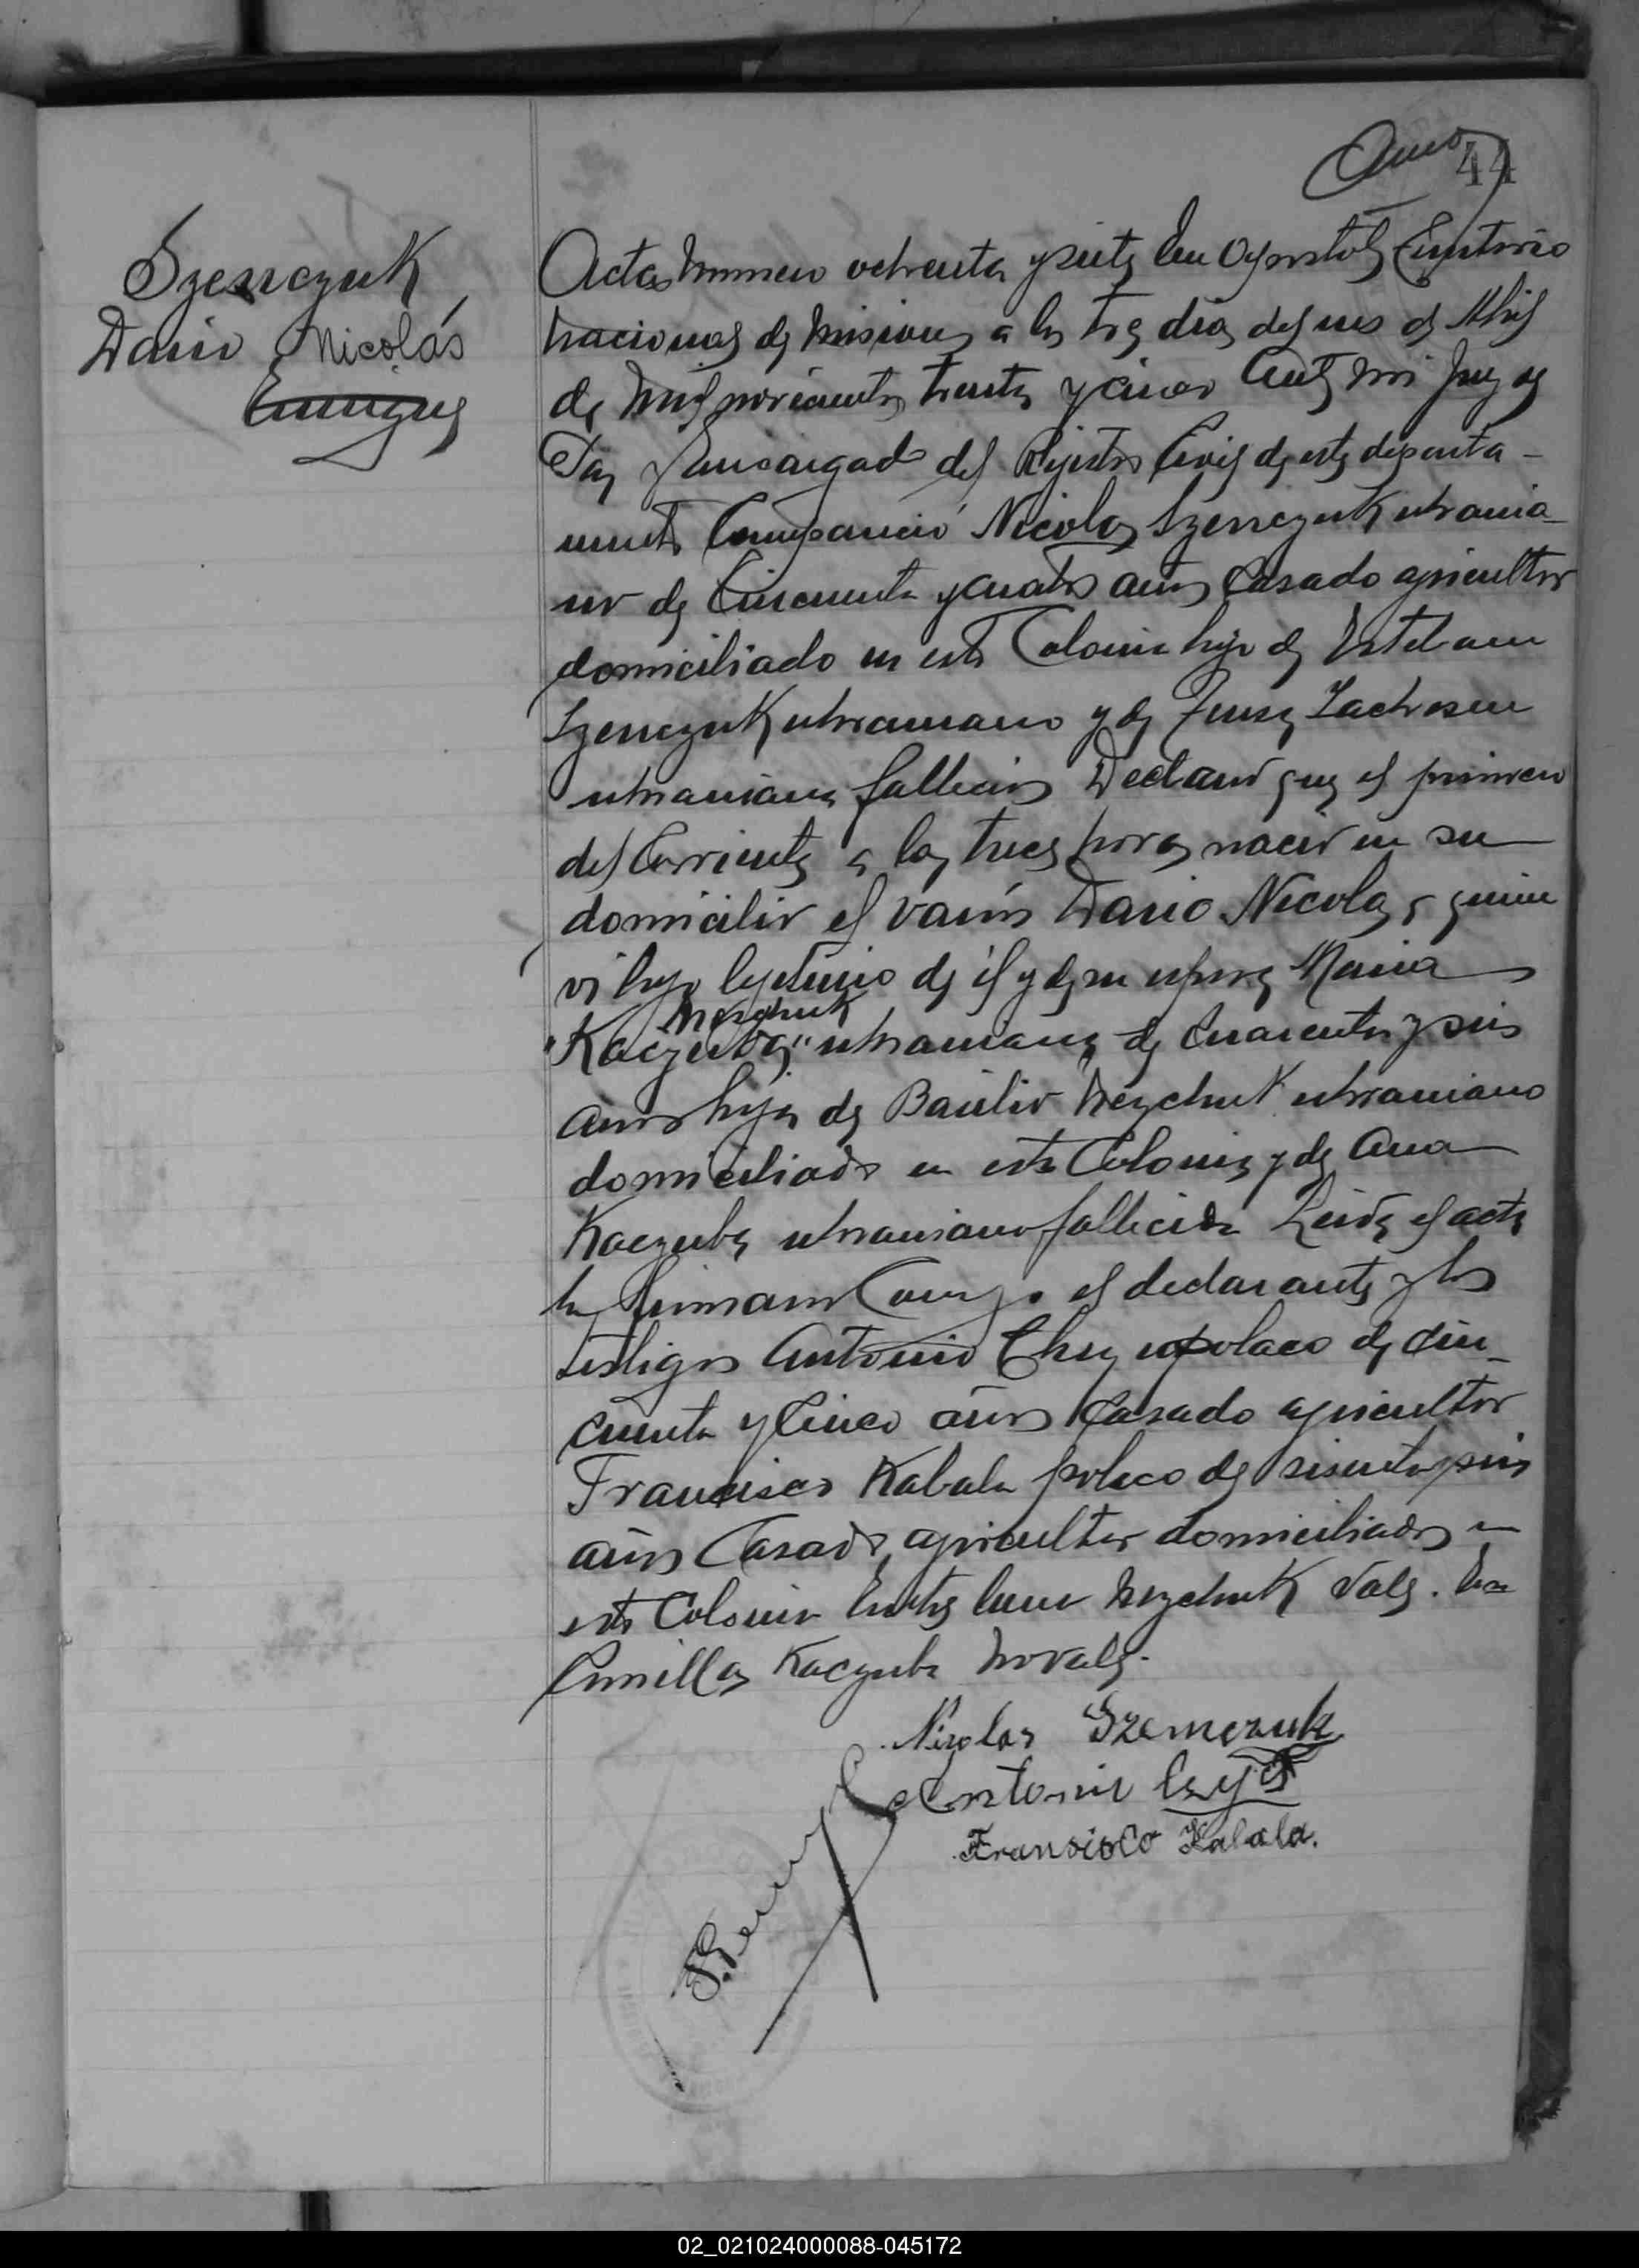 44
Szenczuk
Dario Nicolás
Enrique
Acta numero ochenta y siete En Apostoles Territorio
Nacional de Misiones a los tres dias del mes de Abril
de mil novecientos treinta y cinco Ante mi Juez de
Paz y Encargado del Rejistro Civil de este departa-
mento Compareció Nicolas Szenczuk ukrania-
no de Cincuenta y cuatro años Casado agricultor
domiciliado en esta Colonia hijo de Esteban
Szenczuk ukraniano y de
ukraniana fallecidos Declaró que el primero
del Corriente a las trece horas nació en su
domicilio el varón Dario Nicolas a quien
vi hijo lejitimo de él y de su esposa Maria
Mezchuk
"Kaczuba" ukraniana de cuarenta y seis
años hija de Basilio Mezchuk ukraniano
domiciliado en esta Colonia y de Ana
Kaczuba ukraniana fallecida Leida el acta
la firmaron Conmigo el declarante y los
testigos Antonio polaco de cin-
cuenta y Cinco años Casado agricultor
Francisco Kabala polaco de sesenta y seis
años Casado agricultor domiciliados en
esta Colonia Entre linea Mezchuk Vale. En
Comillas Kaczuba No vale.
Nicolas Szemczuk
Antonio
Fransisco Kabala.
02_021024000088-045172